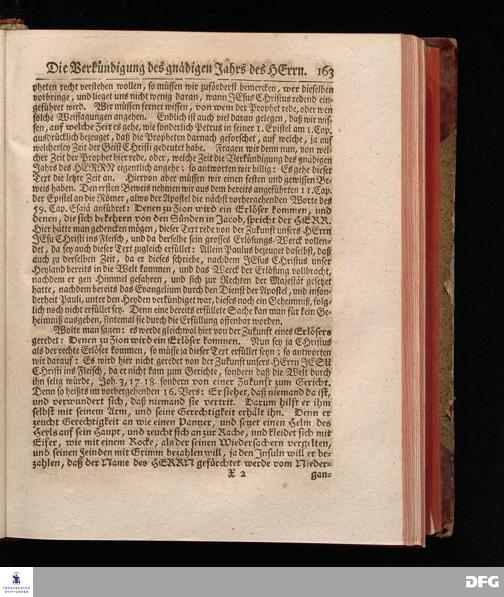 Die Verkündigung des gnädigen Jahrs des HErrn. 163
pheten recht verstehen wollen, so müssen wir zuförderst bemercken, wer dieselben
vorbringe, und lieget uns nicht wenig daran, wann JEsus Christus redend ein-
geführet wird. Wir müssen ferner wissen, von wem der Prophet rede, oder wen
solche Weissagungen angehen. Endlich ist auch viel daran gelegen, daß wir wis-
sen, auf welche Zeit es gehe, wie sonderlich Petrus in seiner 1. Epistel am 1. Cap.
ausdrücklich bezeuget, daß die Propheten darnach geforschet, auf welche, ja auf
welcherley Zeit der Geist Christi gedeutet habe. Fragen wir denn nun, von wel-
cher Zeit der Prophet hier rede, oder, welche Zeit die Verkündigung des gnädigen
Jahrs des HERRN eigentlich angehe: so antworten wir billig: Es gehe dieser
Text die letzte Zeit an. Hiervon aber müssen wir einen festen und gewissen Be-
weis haben. Den ersten Beweis nehmen wir aus dem bereits angeführten 11. Cap.
der Epistel an die Römer, alwo der Apostel die nächst vorhergehenden Worte des
59. Cap. Esajä anführet: Denen zu Zion wird ein Erlöser kommen, und
denen, die sich bekehren von den Sünden in Jacob, spricht der HERR.
Hier hätte man gedencken mögen, dieser Text rede von der Zukunft unsers HErrn
JEsu Christi ins Fleisch, und da derselbe sein grosses Erlösungs-Werck vollen-
det, da sey auch dieser Text zugleich erfüllet: Allein Paulus bezeuget daselbst, daß
auch zu derselben Zeit, da er dieses schriebe, nachdem JEsus Christus unser
Heyland bereits in die Welt kommen, und das Werck der Erlösung vollbracht,
nachdem er gen Himmel gefahren, und sich zur Rechten der Majestät gesetzt
hatte, nachdem bereits das Evangelium durch den Dienst der Apostel, und inson-
derheit Pauli, unter den Heyden verkündiget war, dieses noch ein Geheimniß, folg-
lich noch nicht erfüllet sey. Denn eine bereits erfüllete Sache kan man für kein Ge-
heimniß ausgeben, sintemal sie durch die Erfüllung offenbar worden.
Wolte man sagen: es werde gleichwol hier von der Zukunft eines Erlösers
geredet: Denen zu Zion wird ein Erlöser kommen. Nun sey ja Christus
als der rechte Erlöser kommen, so müsse ja dieser Text erfüllet seyn; so antworten
wir darauf: Es wird hier nicht geredet von der Zukunft unsers HErrn JESU
Christi ins Fleisch, da er nicht kam zum Gerichte, sondern daß die Welt durch
ihn selig würde, Joh. 3, 17. 18. sondern von einer Zukunft zum Gericht.
Denn so heißts im vorhergehenden 16. Vers: Er siehet, daß niemand da ist,
und verwundert sich, daß niemand sie vertrit. Darum hilft er ihm
selbst mit seinem Arm, und seine Gerechtigkeit erhält ihn. Denn er
zeucht Gerechtigkeit an wie einen Panzer, und setzet einen Helm des
Heyls auf sein Haupt, und zeucht sich an zur Rache, und kleidet sich mit
Eifer, wie mit einem Rocke, als der seinen Wiedersachern vergelten,
und seinen Feinden mit Grimm bezahlen will, ja den Insuln will er be-
zahlen, daß der Name des HERRN gefürchtet werde vom Nieder-
X 2 gan-
FRANCKESCHE STIFTUNGEN
DFG